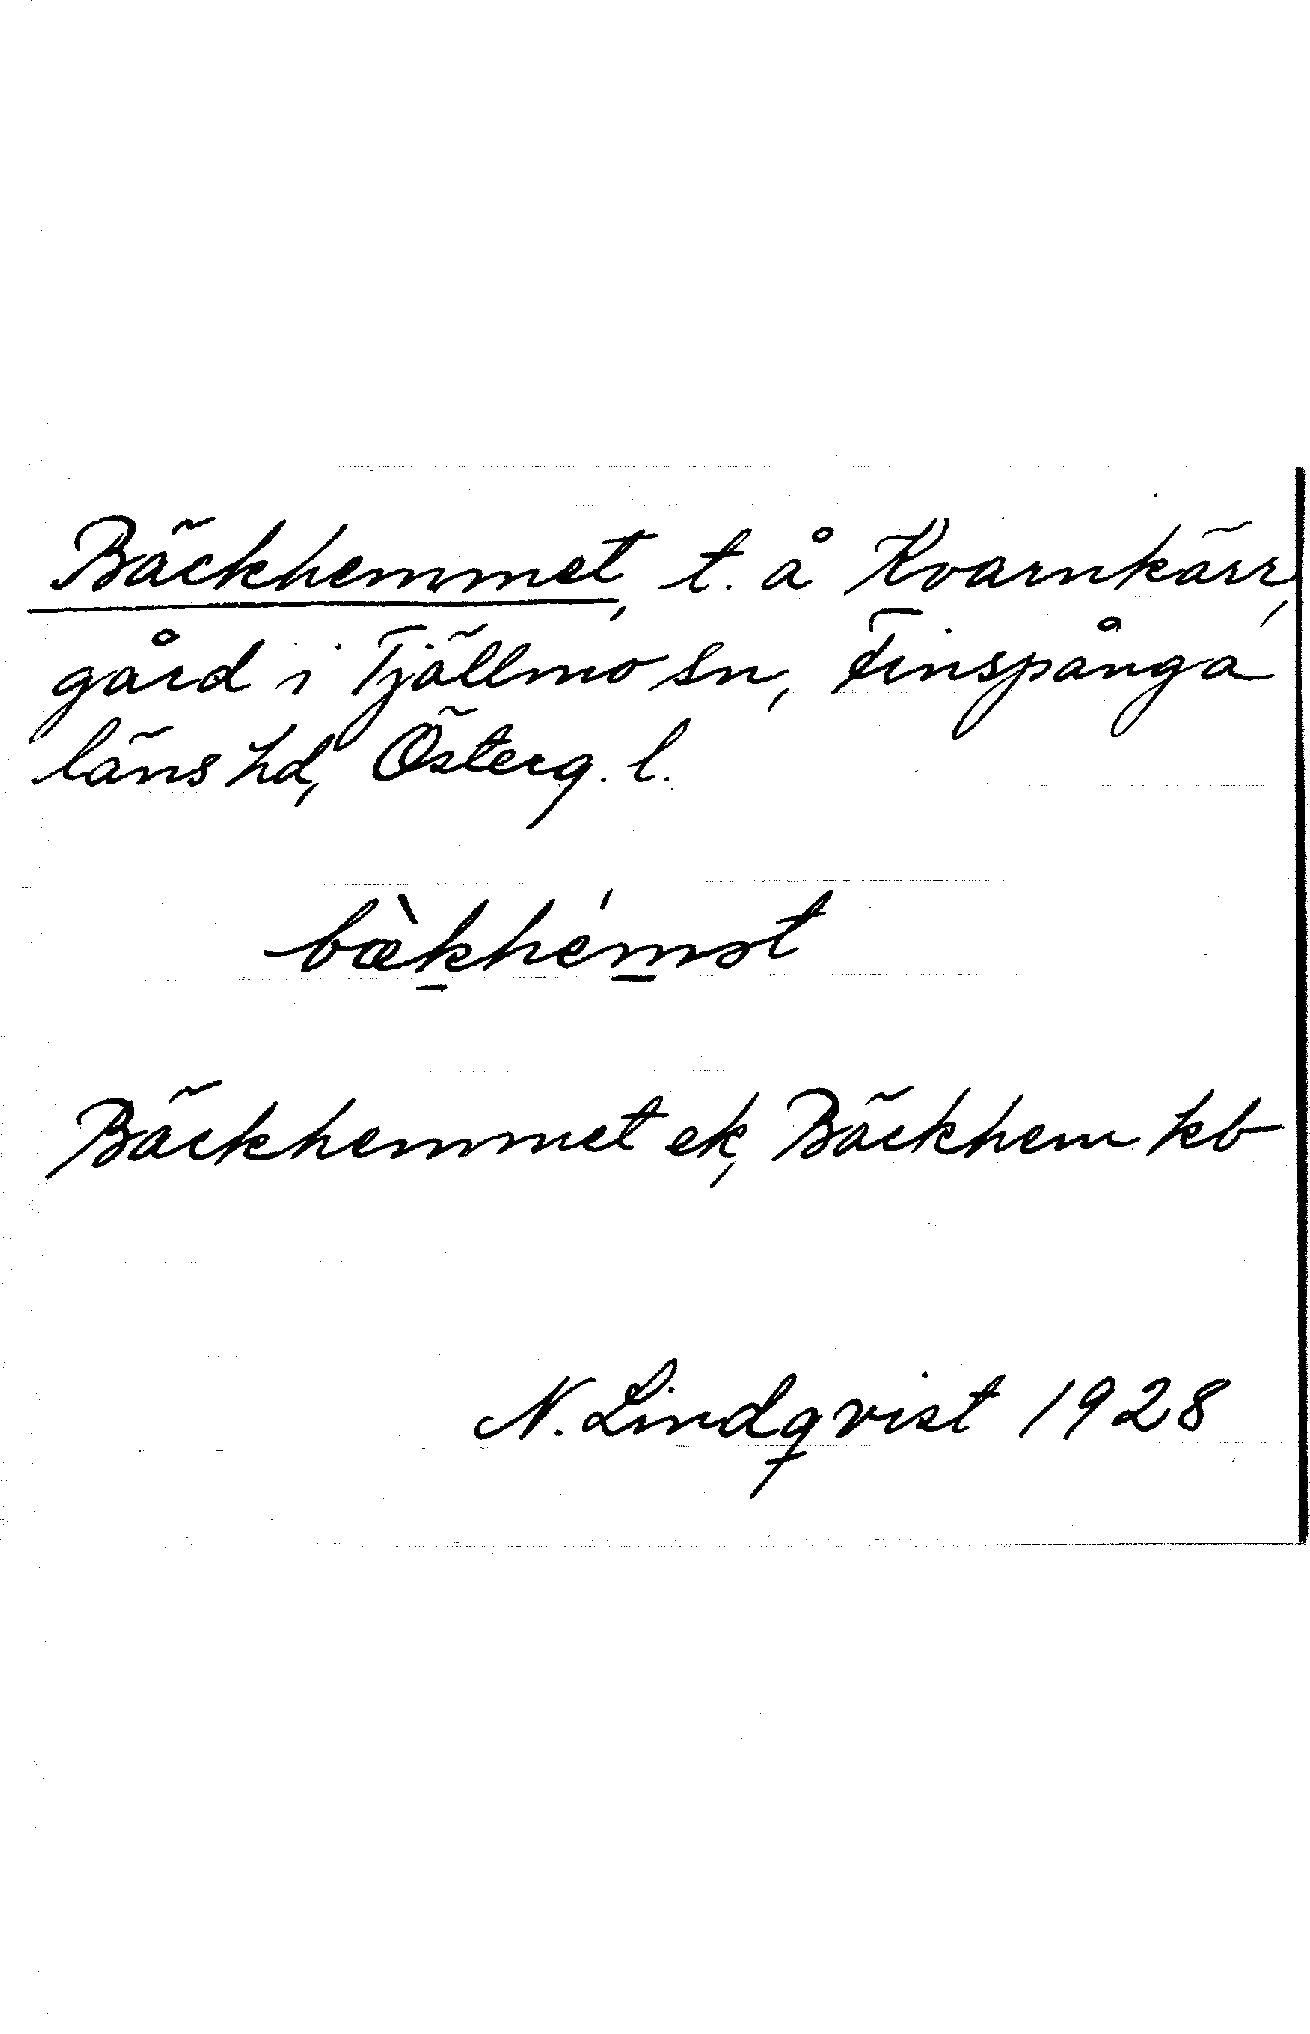 Bäckhemmet, t. å Kvarnkärr,
gård i Tjällmo sn, Finspånga
läns hd, Österg. l.
bæ̀k̲hém̲ət
Bäckhemmet ek, Bäckhem kb
N. Lindqvist 1928